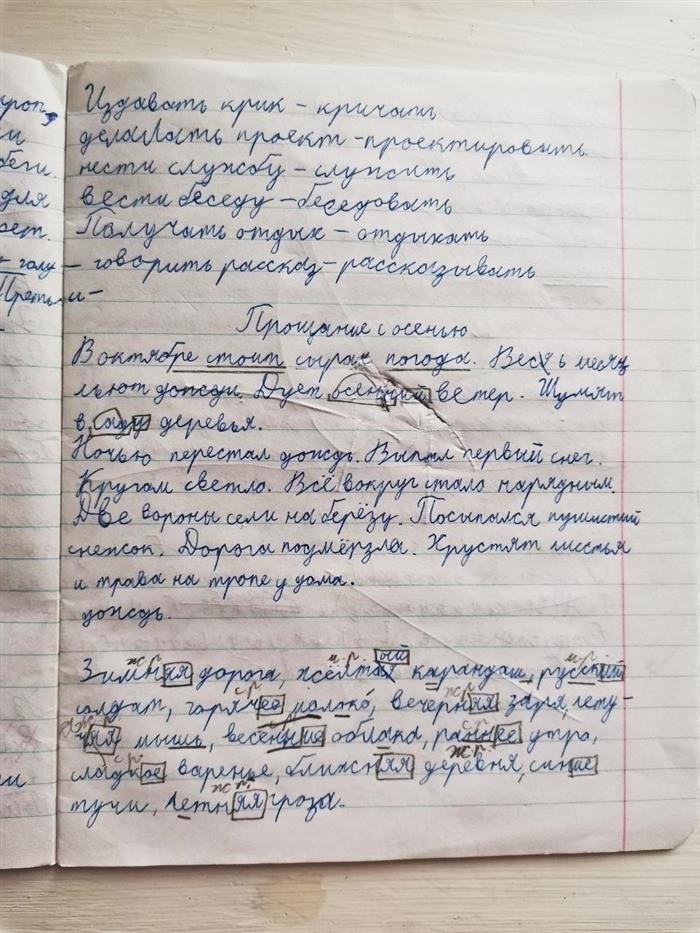 Издавать крик – кричать
делать проект – проектировать
нести службу – служить
вести беседу – беседовать
Получать отдых – отдыхать
говорить рассказ – рассказывать
Прощание с осенью
В октябре стоит сырая погода. Весь месяц
льют дожди. Дует осенний ветер. Шумят
в саду деревья.
Ночью перестал дождь. Выпал первый снег.
Кругом светло. Всё вокруг стало нарядным.
Две вороны сели на берёзу. Посыпался пушистый
снежок. Дорога подмёрзла. Хрустят листья
и трава на тропе у дома.
дождь.
Зимняя дорога, жёлтый карандаш, русский
солдат, горячее молоко, вечерняя заря, лету-
чая мышь, весенние облака, раннее утро,
сладкое варенье, ближняя деревня, синие
тучи, летняя гроза.